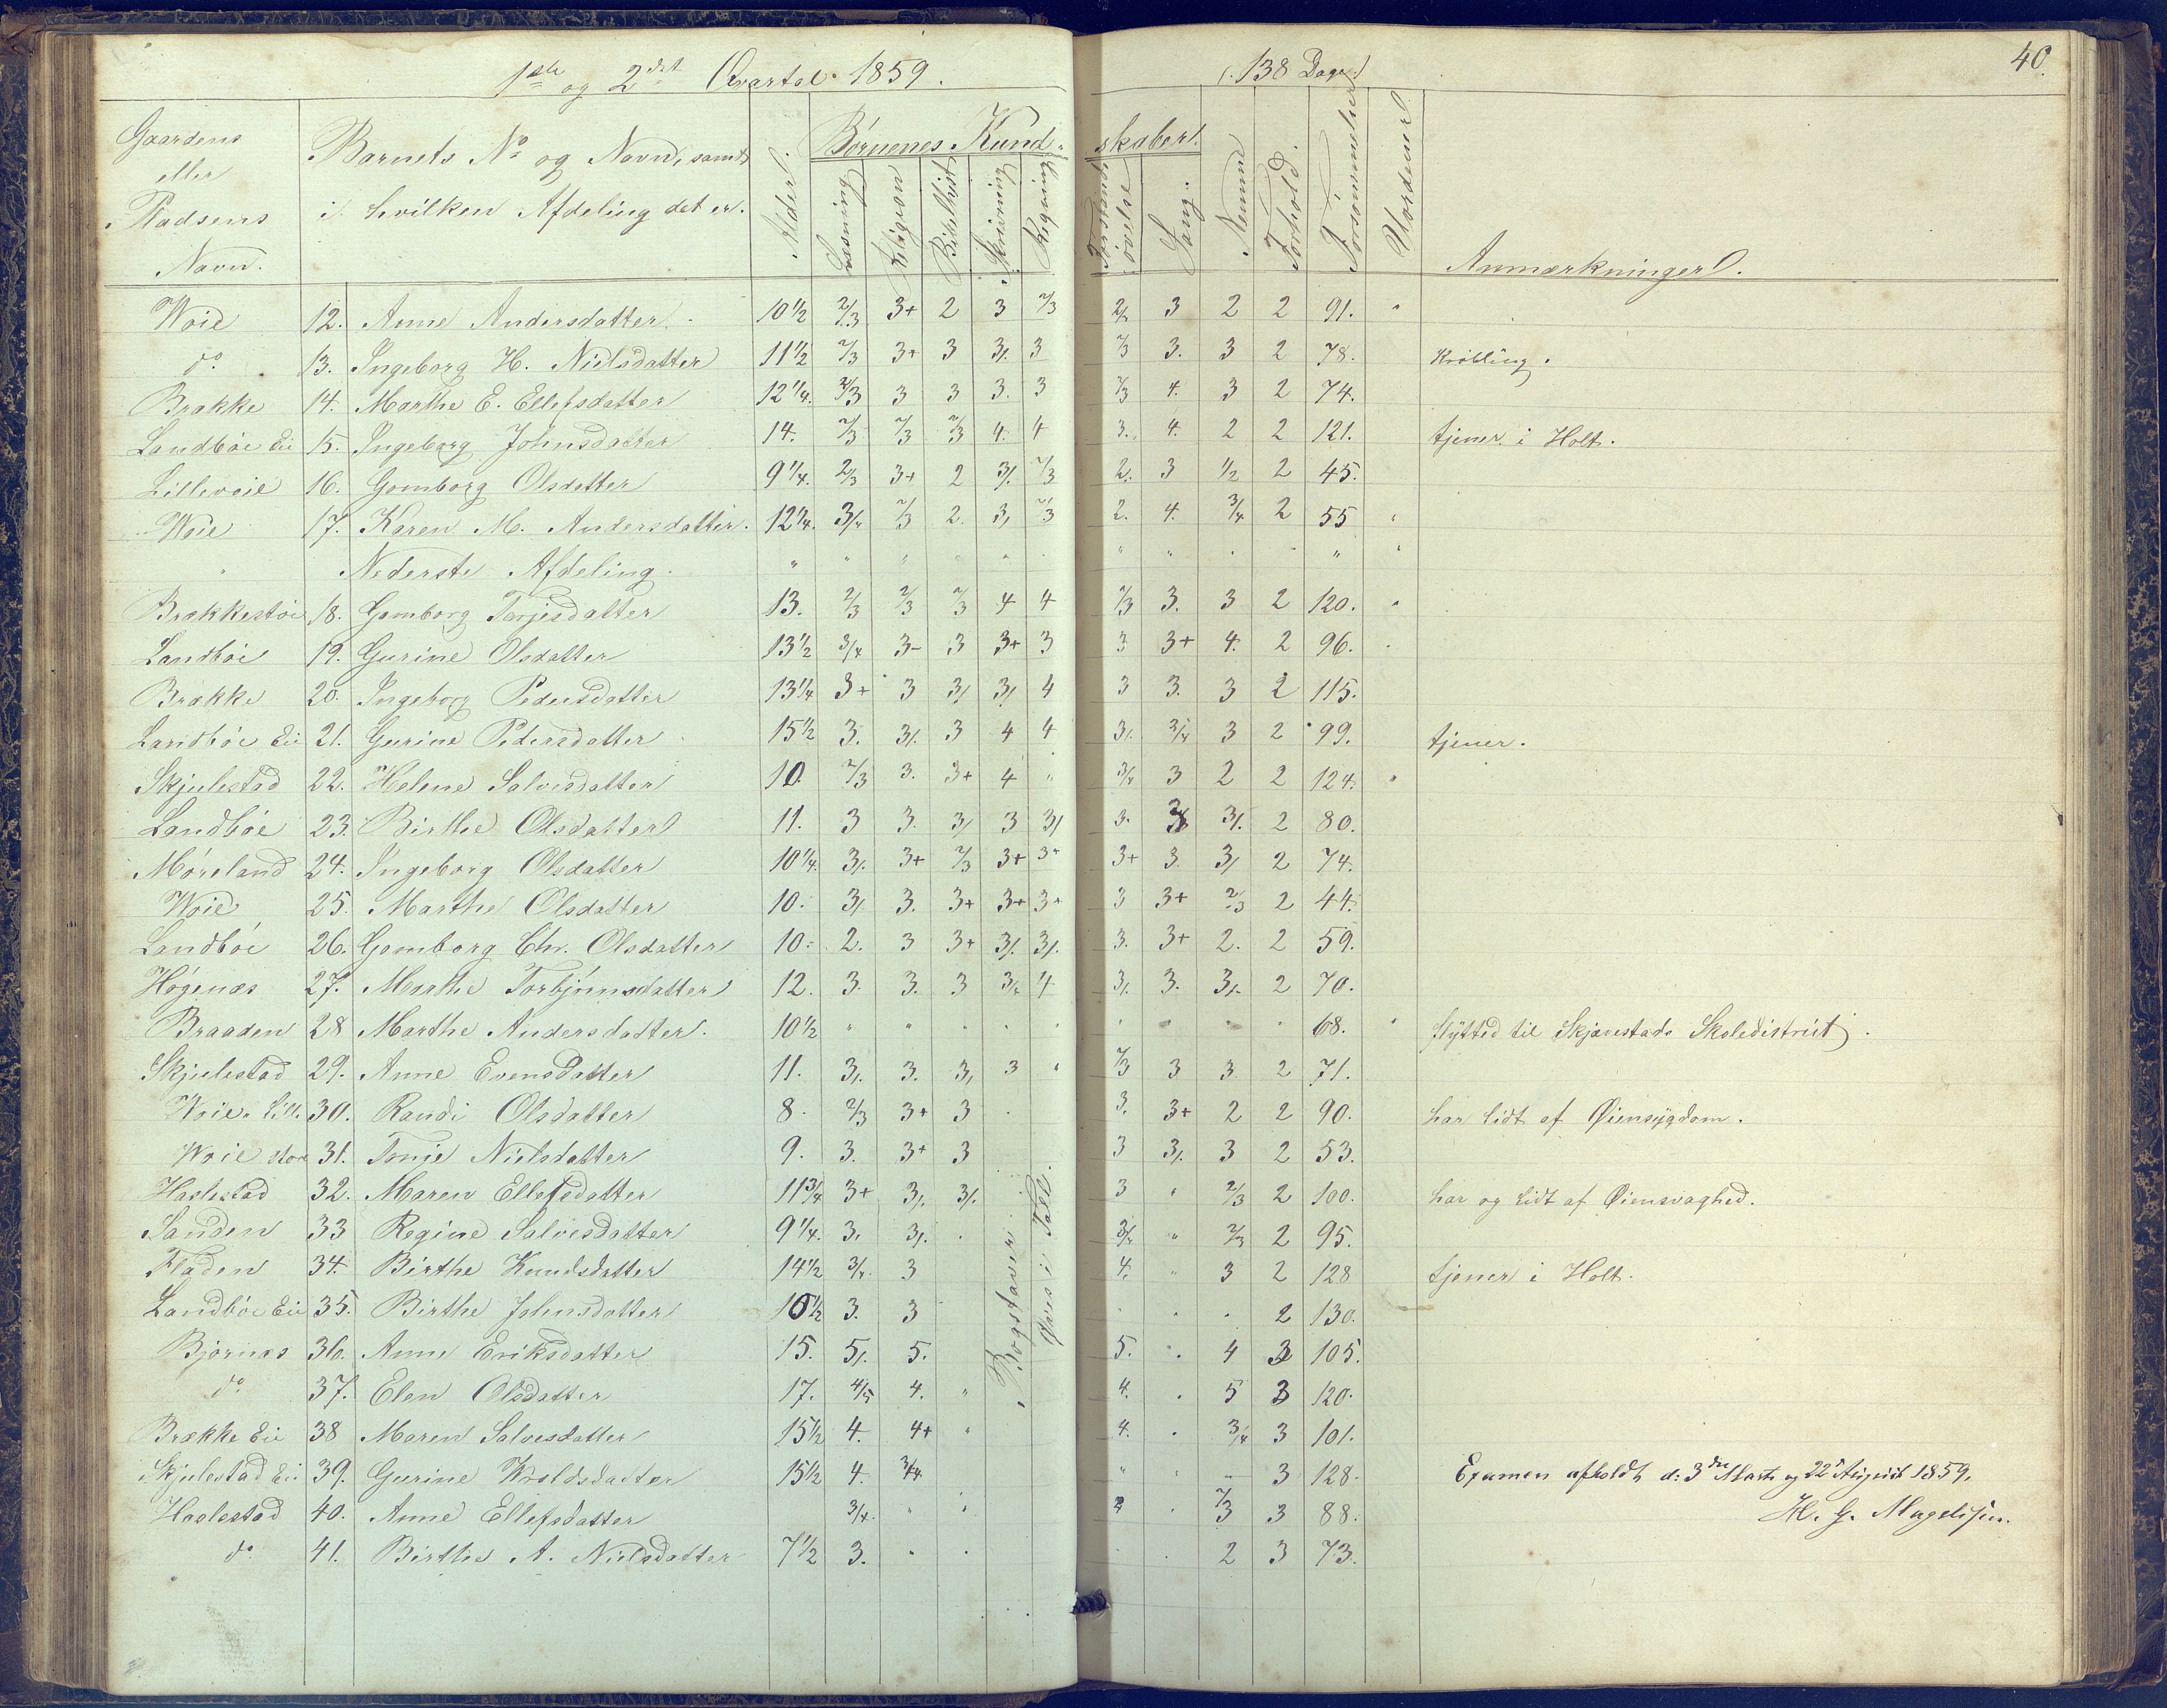 1ste og 2det Qvartal 1859.
(: 138 Dage :)
40.
Gaardens eller Pladsens Navn.
Barnets No og Navn, samt i hvilken Afdeling det er.
Alder.
Børnenes Kundskaber.
Læsning
Religion
Bibelhist
Skrivning
Regning
Forstands øvelse
Sang.
Nemme
Forhold.
Forsømmelser
Uordener
Anmærkninger.
Woie 12. Anne Andersdatter 10 1/2 2/3 3+ 2 3 2/3 2/ 3 2 2 91. "
do 13. Ingeborg H. Nielsdatter 11 1/2 2/3 3+ 3 3/. 3 2/3 3. 3 2 78. Krøbling.
Brække 14. Marthe E. Ellefsdatter 12 1/4. 2/3 3 3 3. 3 2/3 4. 3 2 74.
Landbøe Eie 15. Ingeborg Johnsdatter 14. 2/3 2/3 2/3 4. 4 3. 4. 2 2 121. tjener i Holt.
Lillevoie 16. Gomborg Olsdatter 9 1/4. 2/3 3+ 2 3/. 2/3 2. 3 1/2 2 45.
Woie 17. Karen M. Andersdatter. 12 1/4. 3/4 2/3 2. 3/ 2/3 2. 4. 3/4 2 55
Nederste Afdeling.
Brækkestøe 18. Gomborg Torjesdatter 13. 2/3 2/3 2/3 4 4 2/3 3. 3 2 120.
Landbøe 19. Gurine Olsdatter 13 1/2 3/4 3- 3 3+ 3 3 3+ 4. 2 96.
Brække 20. Ingeborg Pedersdatter 13 1/4 3+ 3 3/ 3/ 4 3 3. 3 2 115.
Landbøe Eie 21. Gurine Pedersdatter 15 1/2 3. 3/. 3 4 4 3/. 3/4 3 2 99. tjener.
Skjulestad 22. Helene Salvesdatter 10. 2/3 3. 3+ 4 " 3/4 3 2 2 124. "
Landbøe 23. Birthe Olsdatter 11. 3 3. 3/ 3 3/ 3. 3 3/. 2 80.
Møreland 24. Ingeborg Olsdatter 10 1/4. 3/. 3+ 2/3 3+ 3+ 3+ 3. 3/ 2 74.
Woie 25. Marthe Olsdatter 10. 3/ 3. 3+ 3+ 3+ 3 3+ 2/3 2 44.
Landbøe 26. Gomborg Chr. Olsdatter 10. 2. 3 3+ 3/. 3/. 3. 3+ 2. 2 59.
Høgenæs 27. Marthe Torbjørnsdatter 12. 3. 3. 3 3/4 4 3/. 3. 3/. 2 70.
Braaden 28 Marthe Andersdatter. 10 1/2 " " " " " 68. " flyttet til Skjævestads Skoledistrict.
Skjulestad 29. Anne Evensdatter 11. 3/. 3. 3/ 3 " 2/3 3 3 2 71.
Woie Lill. 30. Randi Olsdatter 8. 2/3 3+ 3 . 3. 3+ 2 2 90. har lidt af Øiensygdom.
Woie store 31. Tonje Nielsdatter 9. 3. 3+ 3 3 3/. 3 2 53.
Haslestad 32. Maren Ellefsdatter 11 3/4 3+ 3/. 3/. 3 " 2/3 2 100. har og lidt af Øiensvaghed.
Sanden 33 Regine Salvesdatter 9 1/4. 3. 3/. . 3/4 " 2/3 2 95.
Fladen 34. Birthe Knudsdatter 14 1/2 3/4. 3 4. " 3 2 128 tjener i Holt.
Landbøe Eie 35. Birthe Johnsdatter 10 1/2 3. 3 . . . 2 130.
Bjørnæs 36. Anne Eriksdatter 15. 5/. 5. 5. . 4 3 105.
do 37. Elen Olsdatter 17. 4/5 4. " 4. . 5 3 120.
Brække Eie 38 Maren Salvesdatter 15 1/2 4. 4+ " 4. . 3/4 3 101.
Skjulestad Eie 39. Gurine Wraldsdatter 15 1/2 4. 3/4. " " - 3 128.
Haslestad 40. Anne Ellefsdatter 3/4. " " . 2/3 3 88.
do 41. Birthe A. Nielsdatter 7 1/2 3. . . . . 2 3 73.
Bogstaver.
Øves i Tall.
Examen afholdt d: 3die Marts og 22de August 1859.
H. G. Magelssen.